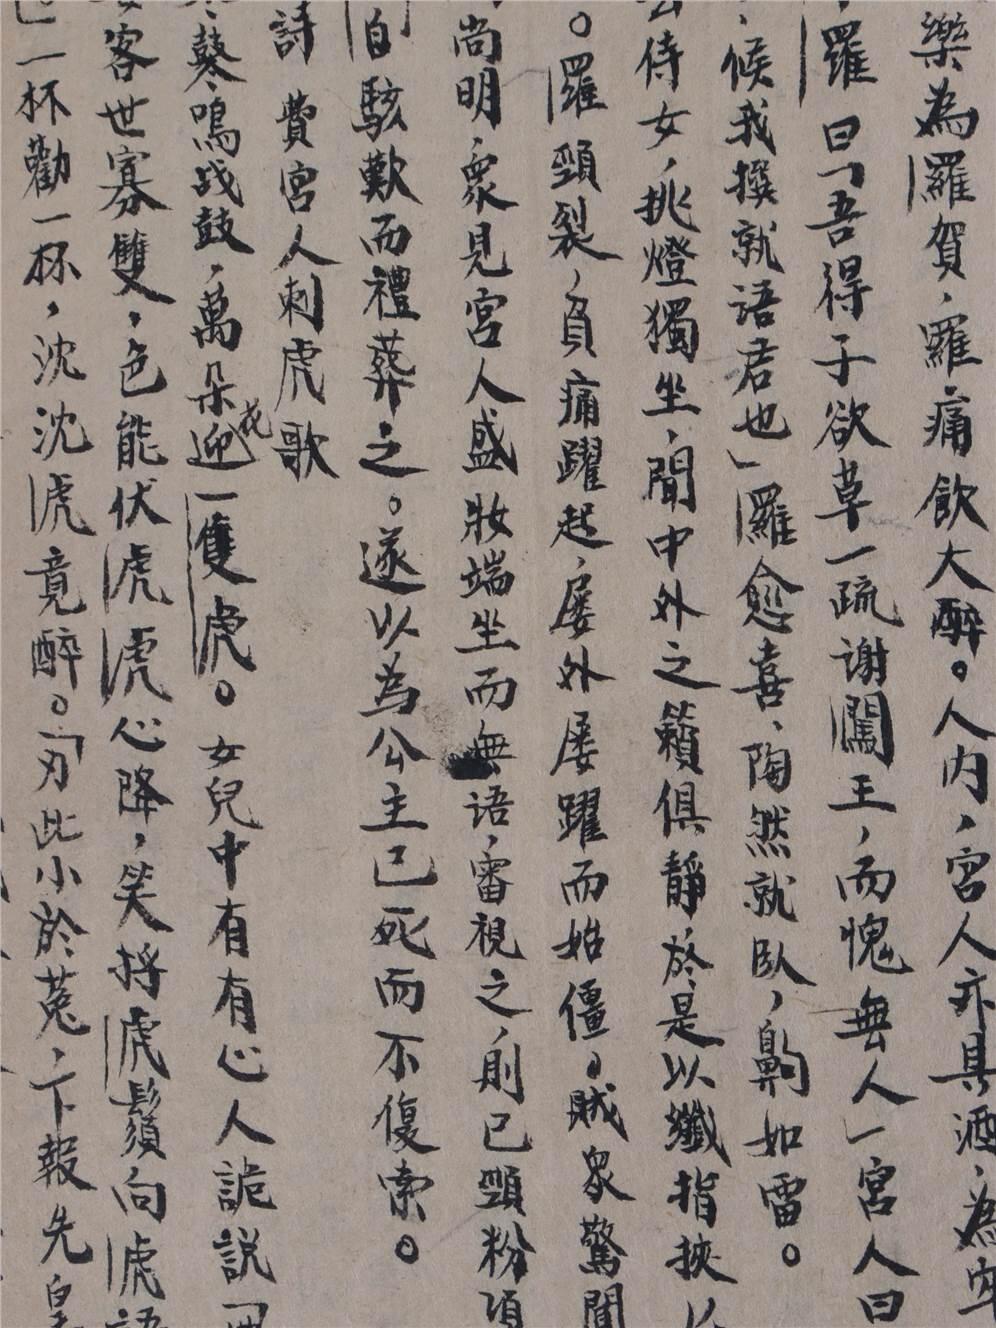 樂為羅賀，羅痛飲大醉。人內，宮人亦具酒，為
羅曰「吾得子欲草一疏謝闖王，而愧無人」宮人曰
，候我撰就語君也」羅愈喜，陶然就臥，鼾如雷。
侍女，挑燈獨坐，聞中外之籟俱靜，於是以纖指挾
。羅頸裂，負痛躍起，屢外屢躍而始僵。賊眾驚聞
尚明，眾見宮人盛妝端坐而無語，審視之，則已頸粉項
自駭歎而禮葬之。遂以為公主已死而不復索。
詩 費宮人刺虎歌
鼕鼕鳴战鼓，萬朵花迎一隻虎。女兒中有有心人詭説「
客世寡雙，色能伏虎虎心降，笑捋虎鬚向虎語
一杯勸一杯，沈沈虎竟醉。「刃此小於菟，下報先皇